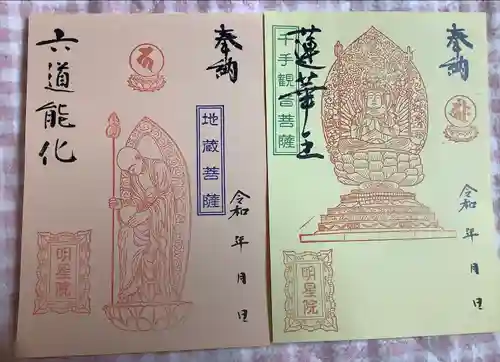 奉納
地蔵菩薩
六道能化
令和 年 月 日
明星院
奉納
蓮華王
千手観音菩薩
令和 年 月 日
明星院